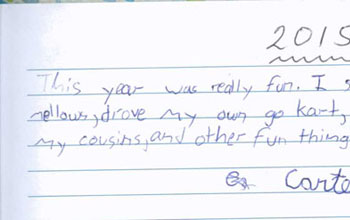 2015
This year was really fun. I s
mellows, drove my own go kart,
my cousins, and other fun thing
Carte